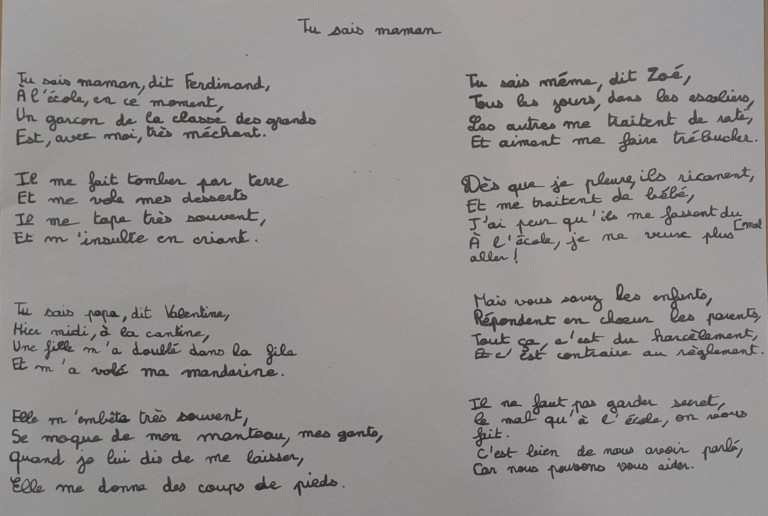 Tu sais maman
Tu sais maman, dit Ferdinand,
À l'école, en ce moment,
Un garçon de la classe des grands
Est, avec moi, très méchant.
Il me fait tomber par terre
Et me vole mes desserts
Il me tape très souvent,
Et m'insulte en criant.
Tu sais papa, dit Valentine,
Hier midi, à la cantine,
Une fille m'a doublé dans la file
Et m'a volé ma mandarine.
Elle m'embête très souvent,
Se moque de mon manteau, mes gants,
quand je lui dis de me laisser,
Elle me donne des coups de pieds.
Tu sais mémé, dit Zoé,
Tous les jours, dans les escaliers,
Les autres me traitent de raté,
Et aiment me faire trébucher.
Dès que je pleure, ils ricanent,
Et me traitent de bébé,
J'ai peur qu'ils me fassent du
[mal
À l'école, je ne veux plus
aller !
Mais vous savez les enfants,
Répondent en chœur les parents,
Tout ça, c'est du harcèlement,
Et c'est contraire au règlement.
Il ne faut pas garder secret,
le mal qu'à l'école, on vous
fait.
C'est bien de nous avoir parlé,
Car nous pouvons vous aider.